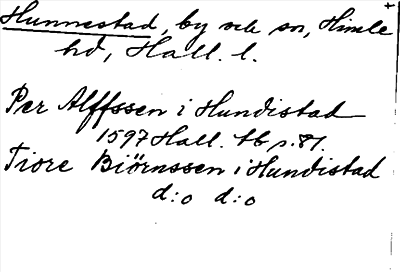 Hunnestad, by och sn, Himle
hd, Hall. l.
Per Alffssen i Hundistad
1597 Hall. tb s. 81.
Tiore Biörnssen i Hundistad
d:o d:o